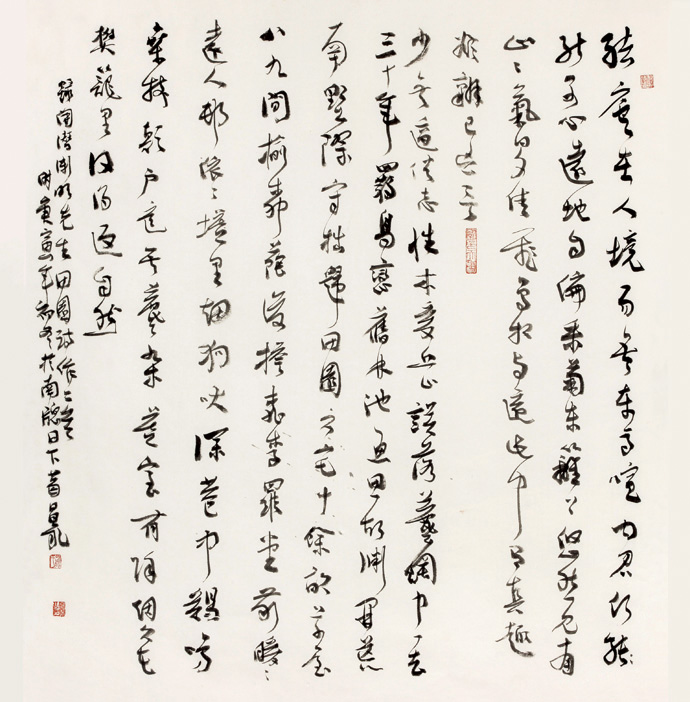 結廬在人境而無車馬喧问君何能
然心遠地自偏采菊東籬下悠然見南
山〻氣日夕佳飛鳥相与還此中有真趣
欲辯已忘言
少無適俗志性本愛丘山誤落塵網中一去
三十年羈鳥戀舊林池魚思故淵開荒
南野際守拙歸田園方宅十餘畝草屋
八九間榆柳蔭後檐桃李羅堂前曖〻
遠人邨依〻墟里烟狗吠深巷中鷄鳴
桑樹顛户庭無塵杂虚室有餘閒久在
樊籠里復得返自然
録陶潛淵明先生田園詩作二首
时庚寅年初冬於南窗日下